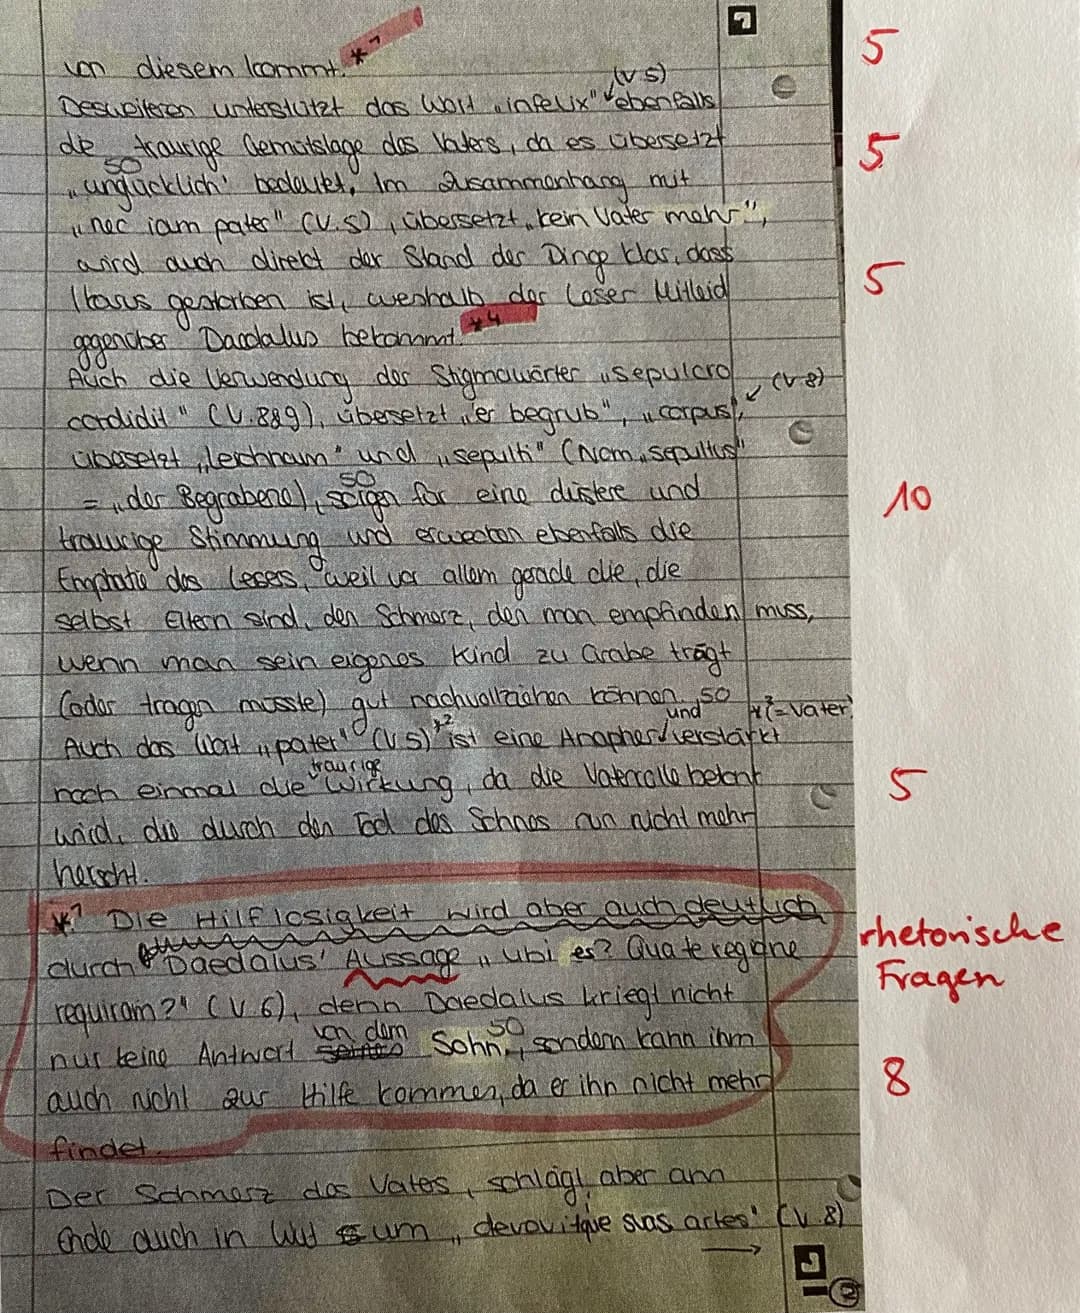 von diesem kommt. *1
5
Desweiteren unterstützt das Wort „infelix" (V 5) ebenfalls
die traurige Gemütslage des Vaters, da es übersetzt
5
so
„unglücklich" bedeutet. Im Zusammenhang mit
„nec iam pater" (V.5), übersetzt „kein Vater mehr",
wird auch direkt der Stand der Dinge klar, dass
5
Ikarus gestorben ist, weshalb der Leser Mitleid
gegenüber Daedalus bekommt. *4
Auch die Verwendung der Stigmawörter „sepulcro
condidit" (V.8&9), übersetzt „er begrub", „corpus",
(V 8)
übersetzt „leichnam" und „sepulti" (Nom. „sepultus"
= „der Begrabene), sorgen für eine düstere und
so
10
traurige Stimmung und erwecken ebenfalls die
Emphatie des Lesers, weil vor allem gerade die, die
selbst Eltern sind, den Schmerz, den man empfinden muss,
wenn man sein eigenes Kind zu Grabe trägt
(oder tragen müsste) gut nachvollziehen können. so
*2 = Vater)
Auch das Wort „pater" (V 5) *2 ist eine Anapher und verstärkt
noch einmal die traurige Wirkung, da die Vaterrolle betont
5
wird, die durch den Tod des Sohnes nun nicht mehr
herscht.
*1 Die Hilflosigkeit wird aber auch deutlich
durch Daedalus' Aussage „ubi es? Qua te regione
rhetorische
Fragen
requiram?" (V 6), denn Daedalus kriegt nicht
nur keine Antwort von dem Sohn, sondern kann ihm
so
8
auch nicht zur Hilfe kommen, da er ihn nicht mehr
findet.
Der Schmerz des Vaters, schlägt aber am
Ende auch in Wut um „devovitque suas artes" (V 8)
→
2